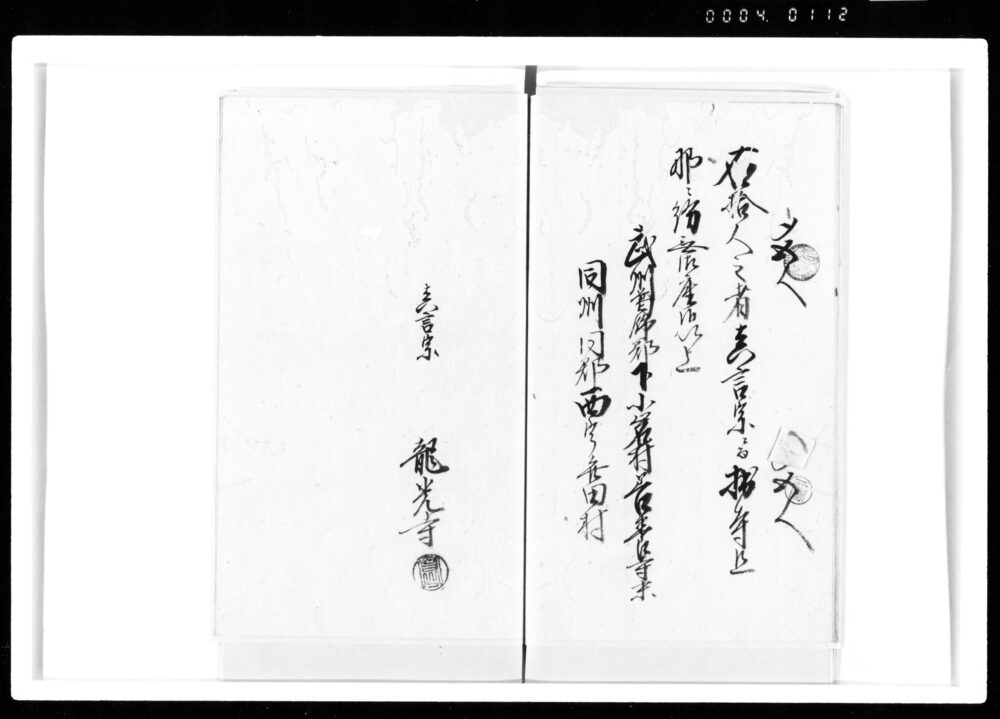 0004. 0112
五人 五人
右拾人之者真言宗ニ而拙寺旦
那ニ紛無御座候以上
武州葛飾郡下小岩村善養寺末
同州同郡西宇喜田村
真言宗 龍光寺